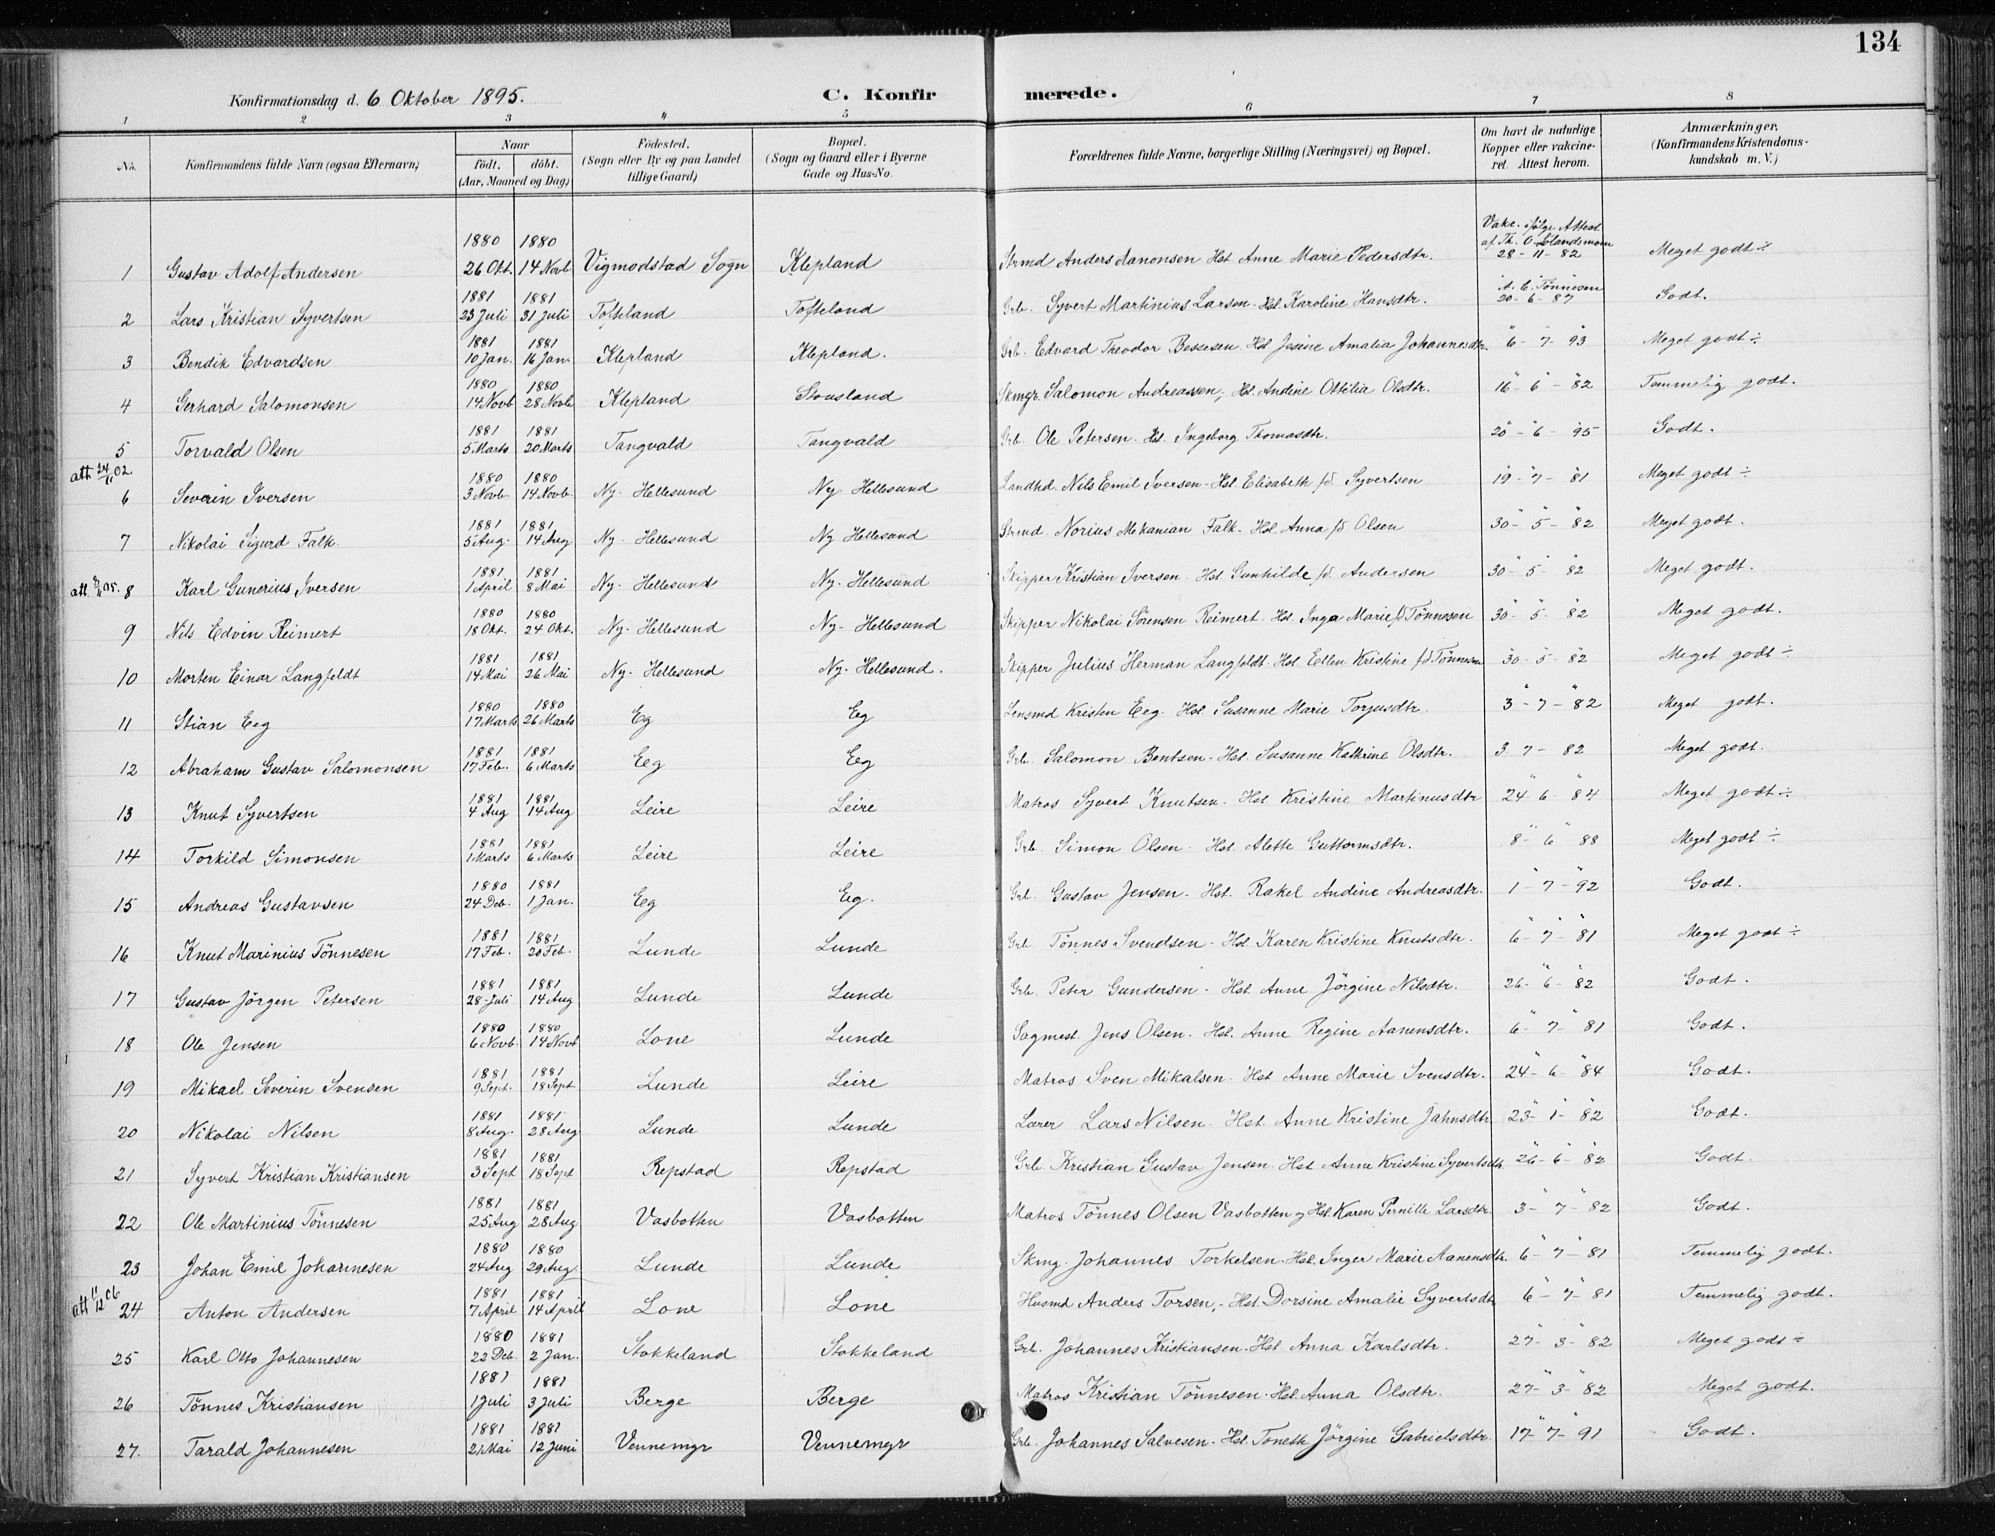 134
Konfirmationsdag d. 6 Oktober 1895. C. Konfirmerede.
1 2 3 4 5 6 7 8
No. Konfirmandens fulde Navn (ogsaa Efternavn) Naar født, døbt. (Aar, Maaned og Dag) Fødested. (Sogn eller By og paa Landet tillige Gaard) Bopæl. (Sogn og Gaard eller i Byerne Gade og Hus-No. Forældrenes fulde Navne, borgerlige Stilling (Næringsvei) og Bopæl. Om havt de naturlige Kopper eller vakcineret. Attest herom. Anmærkninger. (Konfirmandens Kristendomskundskab m. V.)
1 Gustav Adolf Andersen 1880 26 Okt. 1880 14 Novb Vigmodstad Sogn Klepland Strmd Anders Aanonsen Hst. Anne Marie Pedersdtr. Vakc. ifølge Attest af Th. O. 28-11-82 Meget godt ÷
2 Lars Kristian Syvertsen 1881 23 Juli 1881 31 Juli Tofteland Tofteland Grb. Syvert Martinius Larsen Hst. Karoline Hansdtr. A. C. Tönnesen 20-6-87 Godt.
3 Bendik Edvardsen 1881 10 Jan. 1881 16 Jan. Klepland Klepland. Grb. Edvard Theodor Bessesen Hst. Jesine Amalia Johannesdtr. " 6-7-93 Meget godt ÷
4 Gerhard Salomonsen 1880 14 Novb 1880 28 Novb Klepland Stousland Skmgr. Salomon Andreassen, Hst. Andine Ottilia Olsdtr. 16-6-82 Temmelig godt.
5 Torvald Olsen 1881 5 Marts 1881 20 Marts Tangvald Tangvald Grb. Ole Petersen Hst. Ingeborg Thomasdtr. 20-6-95 Godt.
att. 24/11 02.
6 Severin Iversen 1880 3 Novb. 1880 14 Novb. Ny-Hellesund Ny-Hellesund Landhd. Nils Emil Iversen Hst. Elisabeth fd. Syvertsen 19-7-81 Meget godt ÷
7 Nikolai Sigurd Falk. 1881 5 Aug. 1881 14 Aug Ny-Hellesund Ny Hellesund Strmd Norius Mekanian Falk Hst. Anna fd. Olsen 30-5-82 Meget godt.
att. 8 Karl Gunerius Iversen 1881 1 April 1881 8 Mai Ny-Hellesund Ny-Hellesund Skipper Kristian Iversen Hst. Gunhilde fd. Andersen 30-5-82 Meget godt.
9 Nils Edvin Reimert 1880 18 Okt. 1880 24 Okt. Ny-Hellesund Ny-Hellesund Skipper Nikolai Sörensen Reimert Hst. Inga Marie fd Tönnesen 30-5-82 Meget godt.
10 Morten Einar Langfeldt 1881 14 Mai 1881 26 Mai Ny-Hellesund Ny-Hellesund. Skipper Julius Herman Langfeldt Hst. Ellen Kristine fd Tönnesen 30-5-82 Meget godt ÷
11 Stian Eeg 1880 17 Marts 1880 26 Marts Eg Eeg Lensmd Kristen Eeg. Hst. Susanne Marie Torjusdtr. 3-7-82 Meget godt.
12 Abraham Gustav Salomonsen 1881 17 Feb. 1881 6 Marts Eeg Eeg Grb. Salomon Bentsen Hst. Susanne Kathrine Olsdtr. 3 7-82 Meget godt.
13 Knut Syvertsen 1881 4 Aug 1881 14 Aug Leire Leire Matros Syvert Knutsen Hst. Kristine Martinusdtr 24-6-84 Meget godt ÷
14 Torkild Simonsen 1881 1 Marts 1881 6 Marts Leire Leire Grb. Simon Olsen Hst. Alette Guttormsdtr. 8 6 88 Meget godt ÷
15 Andreas Gustavsen 1880 24 Deb. 1881 1 Jan. Eg Eg. Grb. Gustav Jensen. Hst. Rakel Andine Andreasdtr. 1-7-92 Godt.
16 Knut Marinius Tönnesen 1881 17 Feb. 1881 20 Feb. Lunde Lunde Grb. Tönnes Svendsen Hst. Karen Kristine Knutsdtr. 6-7-81 Meget godt ÷
17 Gustav Jörgen Petersen 1881 28 Juli 1881 14 Aug Lunde Lunde Grb. Peter Gundersen Hst. Anne Jörgine Nilsdtr. 26-6-82 Godt.
18 Ole Jensen 1880 6 Novb. 1880 14 Novb Lone Lunde Sagmest. Jens Olsen. Hst. Anne Regine Aanensdtr. 6-7-81 Godt.
19 Mikael Severin Svensen 1881 9 Sept. 1881 18 Sept Lunde Leire Matros Sven Mikalsen Hst Anne Marie Svensdtr. 24-6-84 Godt.
20 Nikolai Nilsen 1881 8 Aug. 1881 28 Aug Lunde Lunde Lærer Lars Nilsen Hst. Anne Kristine Jahnsdtr. 23-1-82 Godt.
21 Syvert Kristian Kristiansen 1881 3 Sept 1881 18 Sept Repstad Repstad Grb. Kristian Gustav Jensen Hst Anne Kristine Syvertsdtr. 26-6-82 Godt.
22 Ole Martinius Tönnesen 1881 25 Aug 1881 28 Aug Vasbotten Vasbotten Matros Tönnes Olsen Vasbotten og Hst. Karen Pernille Larsdtr. 3-7-82 Godt.
23 Johan Emil Johannesen 1880 24 Aug 1880 29 Aug. Lunde Lunde Skmg. Johannes Torkelsen Hst. Inger Marie Aanensdtr. 6-7-81 Temmelig godt.
att 11/12 06 24 Anton Andersen 1881 7 April 1881 14 April Lone Lone Husmd Anders Torsen, Hst. Dorsine Amalie Syvertsdtr 6-7-81 Temmelig godt.
25 Karl Otto Johannesen 1880 22 Deb. 1881 2 Jan. Stokkeland Stokkeland Grb. Johannes Kristiansen Hst. Anna Karlsdtr. 27-3-82 Meget godt ÷
26 Tönnes Kristiansen 1881 1 Juli 1881 3 Juli Berge Berge Matros Kristian Tönnesen Hst. Anna Olsdtr. 27-3-82 Meget godt.
27. Tarald Johannesen 1881 21 Mai 1881 12 Juni Vennemyr Vennemyr Grb. Johannes Salvesen Hst. Toneth Jörgine Gabrielsdtr. 17-7-91 Godt.